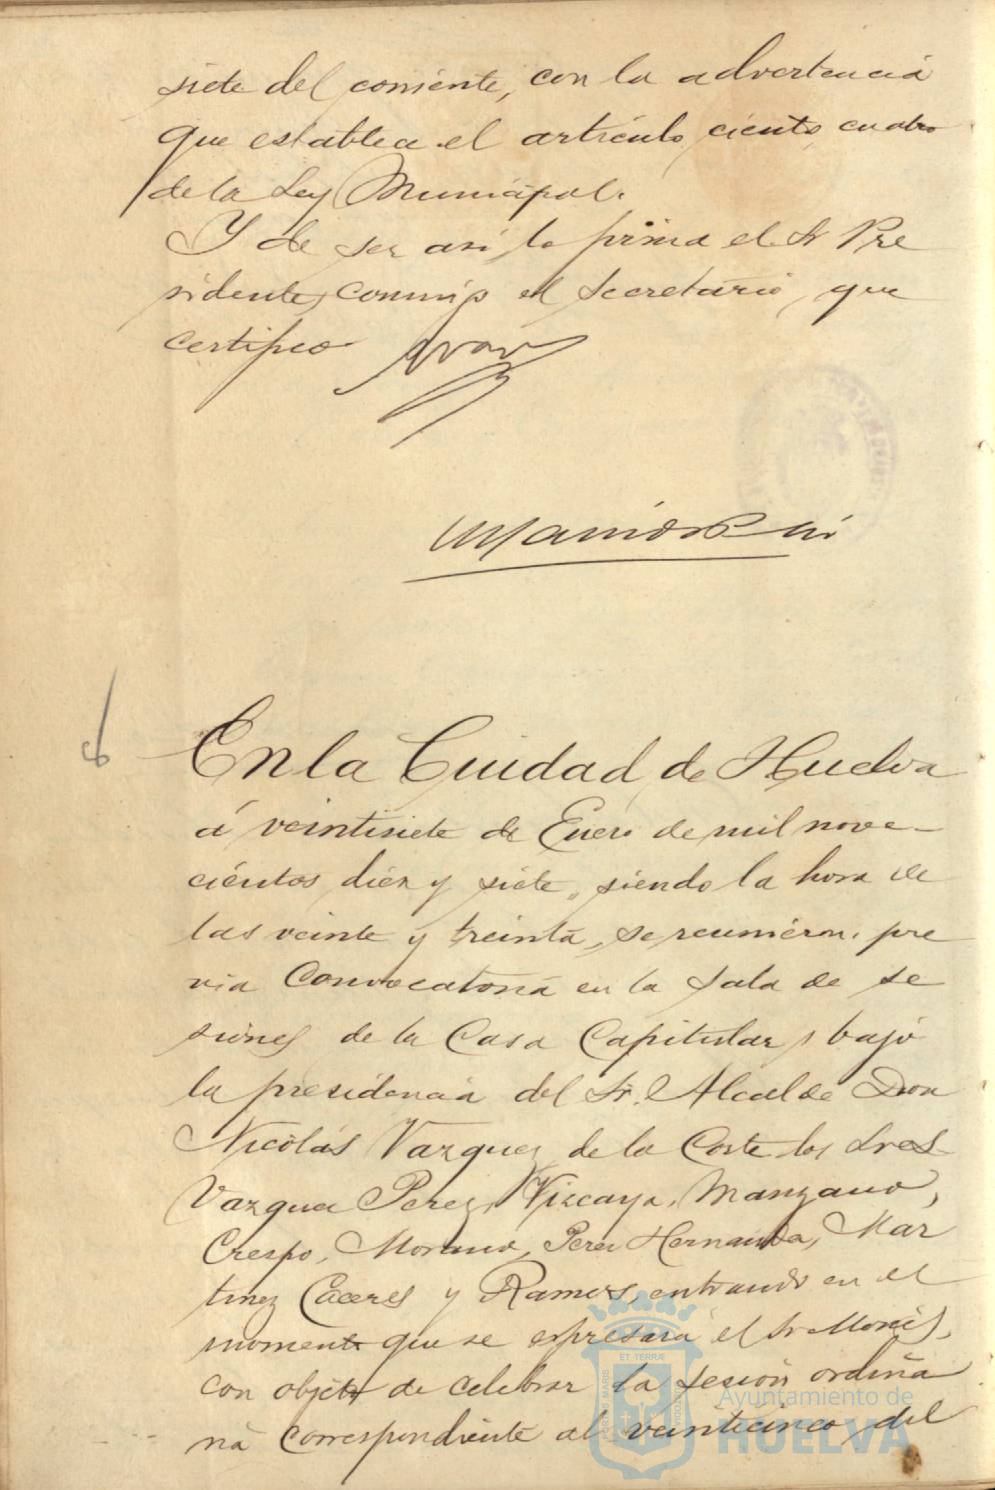 siete del corriente, con la advertencia
que establece el artículo ciento cuatro
de la Ley Municipal.
Y de ser así lo firma el Sr Pre
sidente, conmigo el Secretario, que
certifico
En la Ciudad de Huelva
á veintisiete de Enero de mil nove-
cientos diez y siete, siendo la hora de
las veinte y treinta, se reunieron, pre
via Convocatoria en la Sala de se
siones de la Casa Capitular, bajo
la presidencia del Sr. Alcalde Don
Nicolás Vazquez de la Corte los Sres
Vazquez Perez, Vizcaya, Manzano,
Crespo, Moreno, Perez Hernandez, Mar
tinez Cáceres y Ramos, entrando en el
momento que se expresará el Sr Monís,
con objeto de celebrar la sesión ordina
ria correspondiente al veinticinco del
ET TERRÆ
Ayuntamiento de
HUELVA